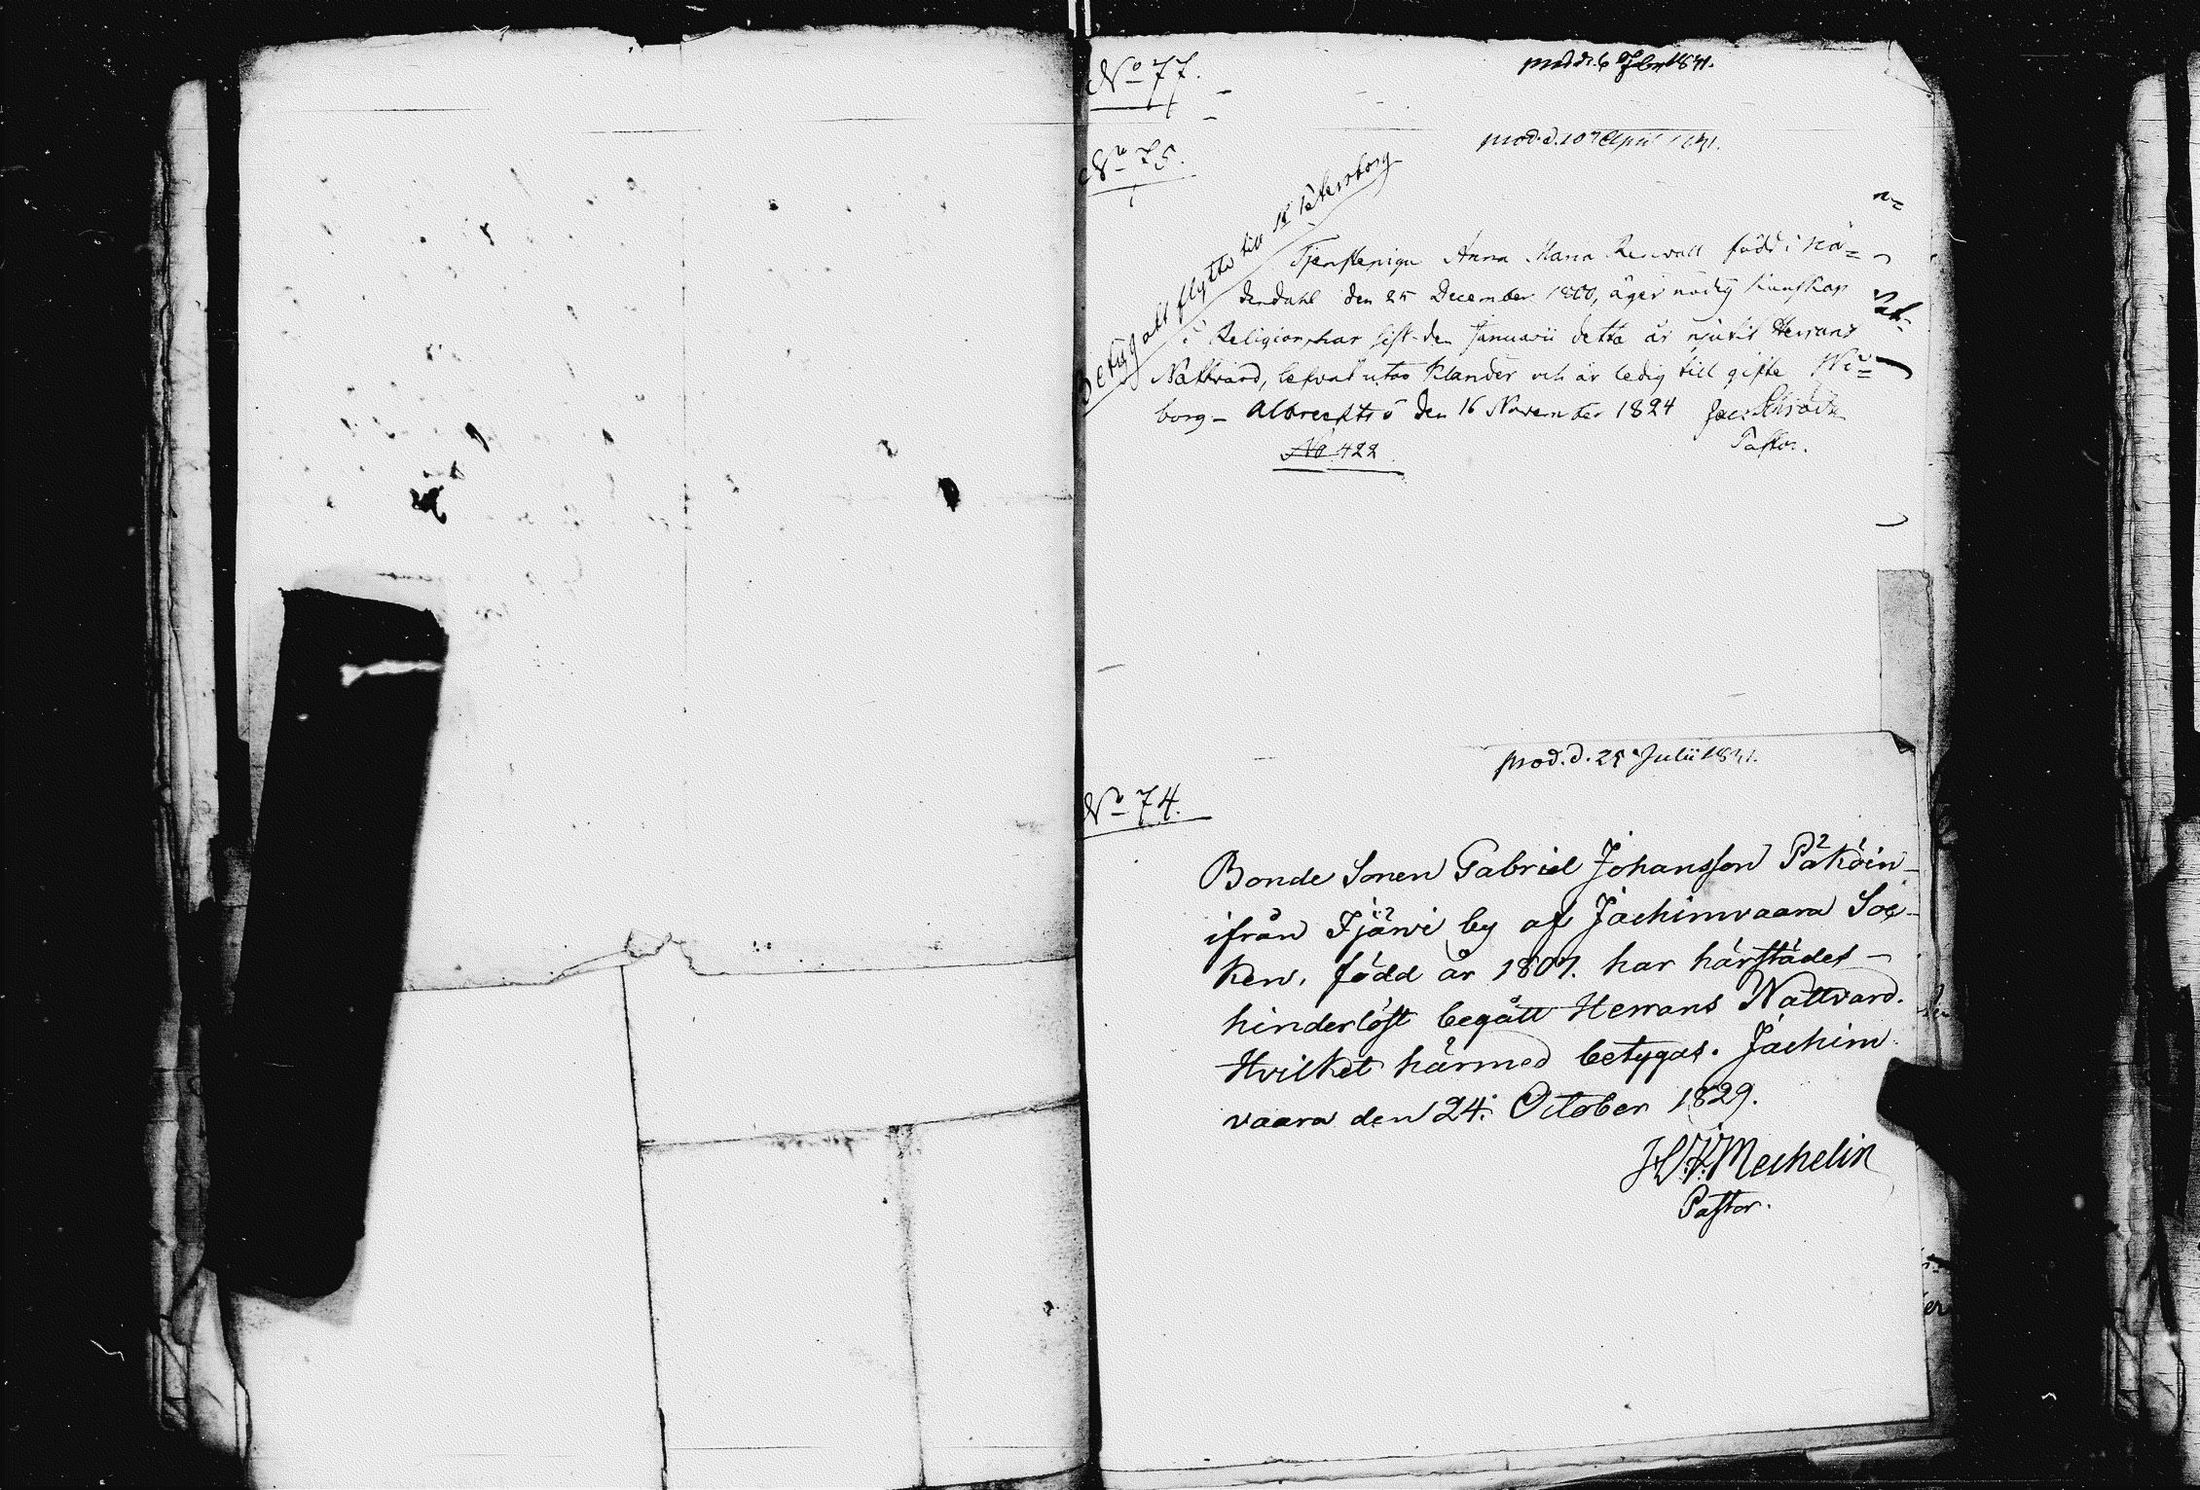 No 77.
prod. d. 6 Febr 1831.
No 75.
prod. d. 10 April 1831.
Betyg att flytta till St Petersborg
Tjenstepigan Anna Maria Renwall född i Nå=
dendahl den 25 December 1800, äger nödig kunskap
i Religion, har sist den Januarii detta år njutit Herrans
Nattvard, lefvat utan klander och är ledig till gifte Wi=
borg - Albrechtsö den 16 November 1824 Jac. Schröder
Pastor.
No 422
prod. d. 25 Julii 1831.
No 74.
Bonde Sonen Gabriel Johansson Päköin
ifrån Ijärvi by af Jachimvaara Soc-
ken, född år 1807. har härstädes -
hinderlöst begått Herrans Nattvard.
Hvilket härmed betygas. Jachim
vaara den 24. October 1829.
Mechelin
Pastor.